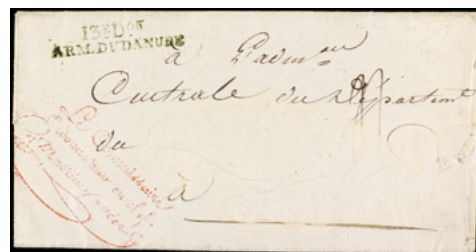 13E DON
ARM. DU DANUBE
à L'admon
Centrale du Départemt
du
à
Le Commissaire
ordonnateur en chef